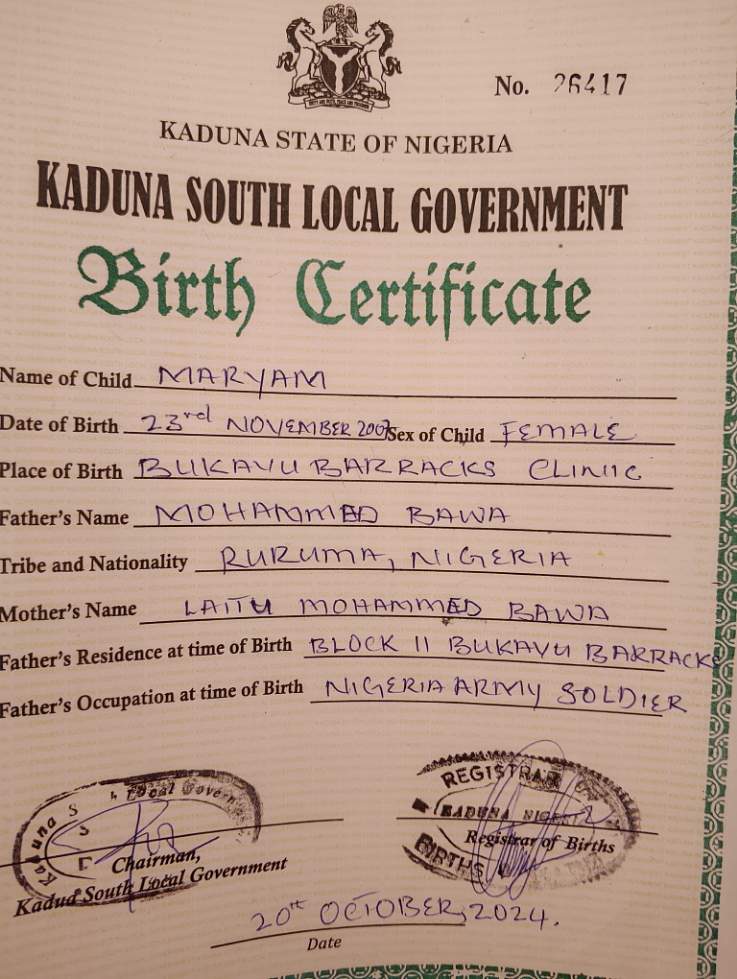 No. 26417
KADUNA STATE OF NIGERIA
KADUNA SOUTH LOCAL GOVERNMENT
Birth Certificate
Name of Child MARYAM
Date of Birth 23rd NOVEMBER 2007 Sex of Child FEMALE
Place of Birth BUKAVU BARRACKS CLINIIC
Father's Name MOHAMMED BAWA
Tribe and Nationality RURUMA, NIGERIA
Mother's Name LAITU MOHAMMED BAWA
Father's Residence at time of Birth BLOCK 11 BUKAVU BARRACKS
Father's Occupation at time of Birth NIGERIA ARMY SOLDIER
Kaduna S Local Govern
Chairman,
Kadud South Local Government
REGISTRAR
KADUNA NIGERIA
Registrar of Births
BIRTHS
20th OCTOBER, 2024.
Date